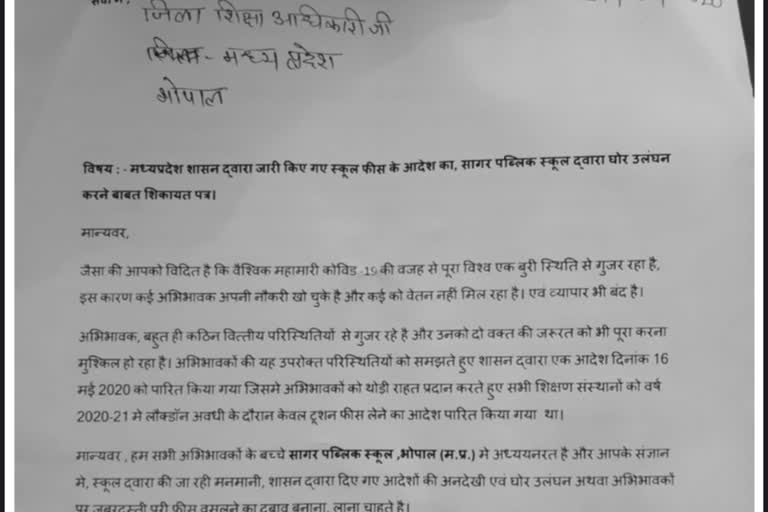 जिला शिक्षा अधिकारी जी
- मध्य प्रदेश
भोपाल
विषय : - मध्यप्रदेश शासन द्वारा जारी किए गए स्कूल फीस के आदेश का, सागर पब्लिक स्कूल द्वारा घोर उलंघन
करने बाबत शिकायत पत्र।
मान्यवर,
जैसा की आपको विदित है कि वैश्विक महामारी कोविड -19 की वजह से पूरा विश्व एक बुरी स्थिति से गुजर रहा है,
इस कारण कई अभिभावक अपनी नौकरी खो चुके है और कई को वेतन नहीं मिल रहा है। एवं व्यापार भी बंद है।
अभिभावक, बहुत ही कठिन वित्तीय परिस्थितियों से गुजर रहे है और उनको दो वक्त की जरूरत को भी पूरा करना
मुश्किल हो रहा है। अभिभावकों की यह उपरोक्त परिस्थितियों को समझते हुए शासन द्वारा एक आदेश दिनांक 16
मई 2020 को पारित किया गया जिसमे अभिभावकों को थोड़ी राहत प्रदान करते हुए सभी शिक्षण संस्थानों को वर्ष
2020-21 मे लौक्डॉन अवधी के दौरान केवल टूशन फीस लेने का आदेश पारित किया गया था।
मान्यवर , हम सभी अभिभावकों के बच्चे सागर पब्लिक स्कूल ,भोपाल (म.प्र.) मे अध्ययनरत है और आपके संज्ञान
मे, स्कूल द्वारा की जा रही मनमानी, शासन द्वारा दिए गए आदेशों की अनदेखी एवं घोर उलंघन अथवा अभिभावकों
पर जबरदस्ती पूरी फीस वसूलने का दबाव बनाना, लाना चाहते है।